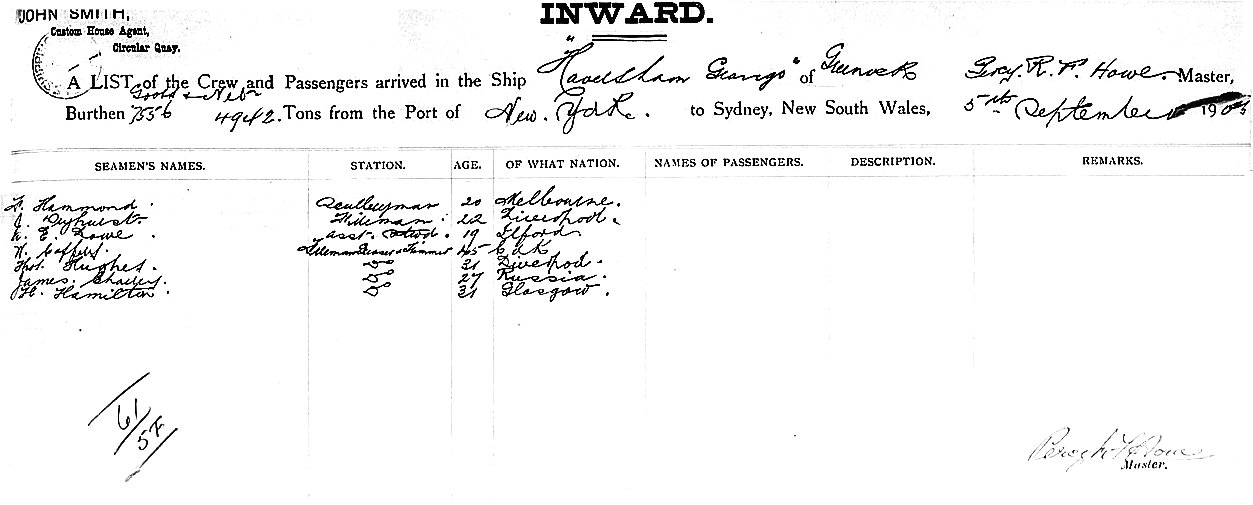 JOHN SMITH,
Custom House Agent,
Circular Quay.
INWARD.
A LIST of the Crew and Passengers arrived in the Ship "Haversham Grange" of Greenock Percy. R. F. Howe. Master,
Burthen 7556 4942. Tons from the Port of New. York. to Sydney, New South Wales, 5th September 190
SEAMEN'S NAMES. STATION. AGE. OF WHAT NATION. NAMES OF PASSENGERS. DESCRIPTION. REMARKS.
Hammond. Sculleryman 20 Melbourne.
Dyhurst. Fireman. 22 Liverpool.
E. Lowe. asst. Stwd. 19 Ilford
W. Fireman Greaser & Trimmer 45 Cork
Hughes. Do 31 Liverpool.
James. Do 27 Russia.
H. Hamilton. Do 31 Glasgow.
61/57
Master.